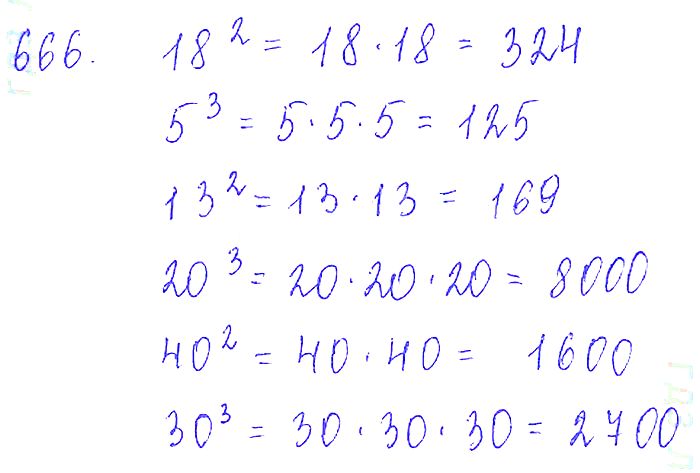 666. 18² = 18 · 18 = 324
5³ = 5 · 5 · 5 = 125
13² = 13 · 13 = 169
20³ = 20 · 20 · 20 = 8000
40² = 40 · 40 = 1600
30³ = 30 · 30 · 30 = 2700